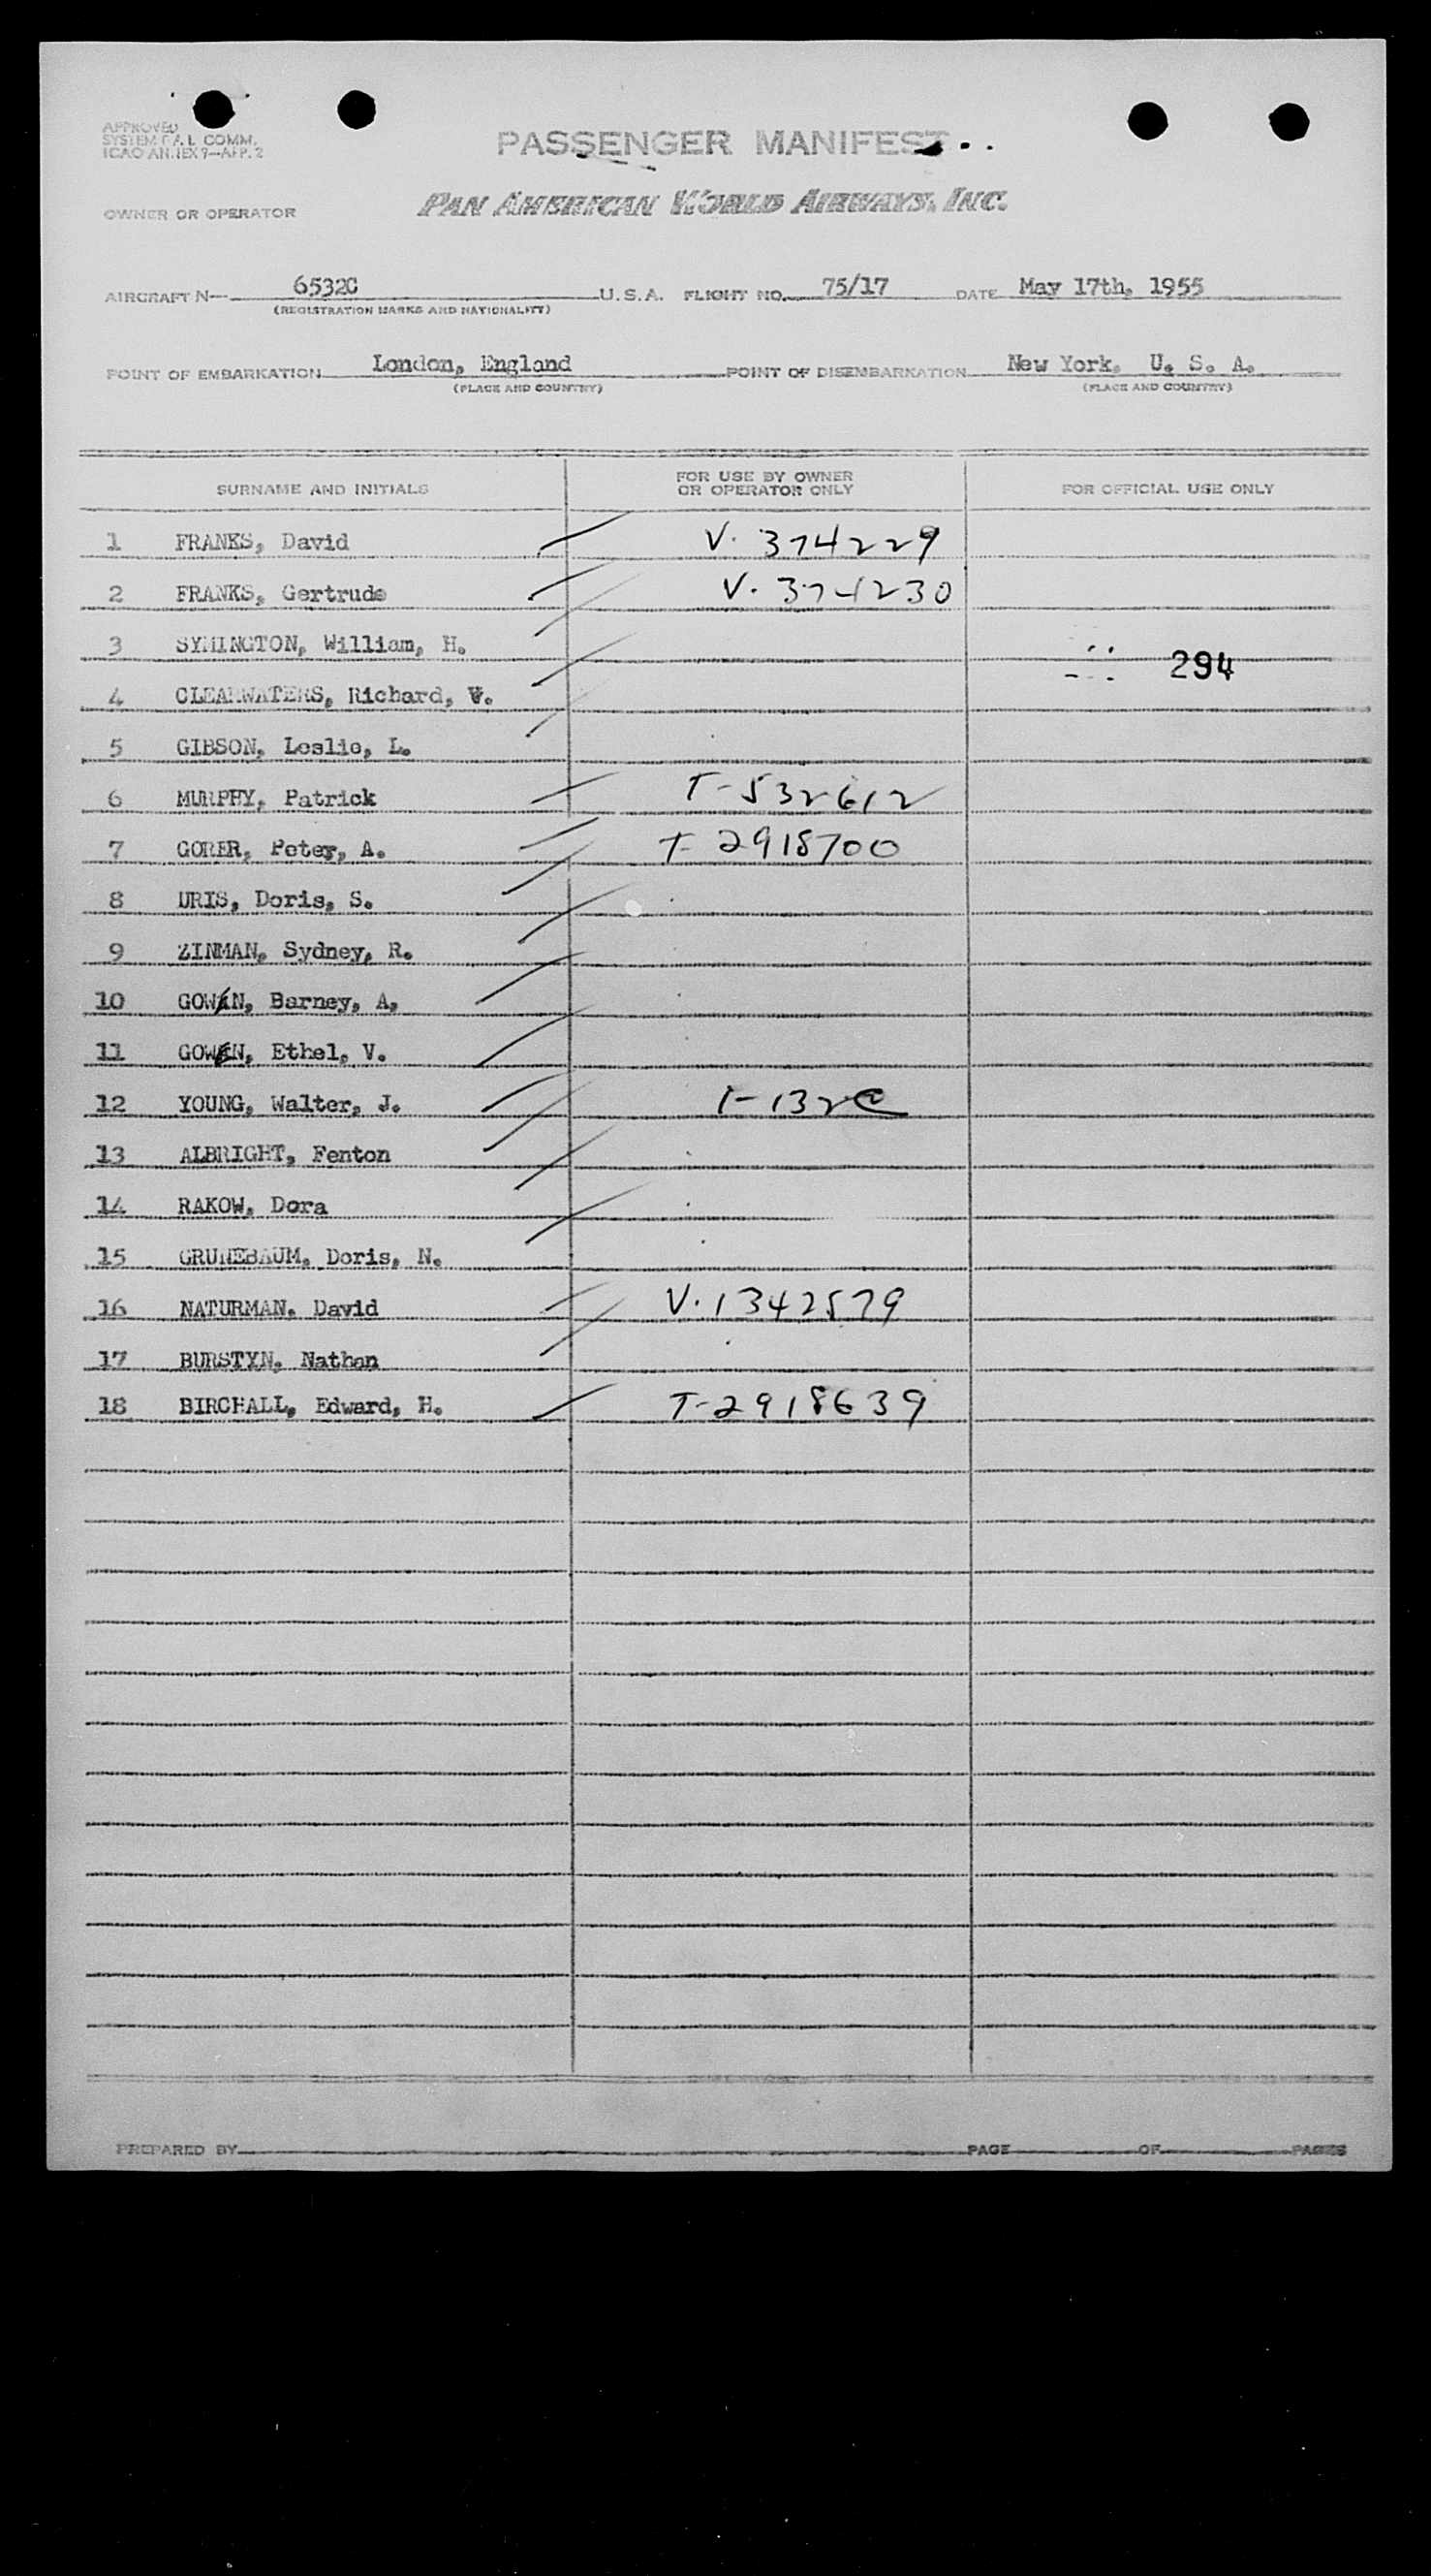 APPROVED
SYSTEM F.A.L. COMM.
ICAO ANNEX 9—APP. 2
PASSENGER MANIFEST
OWNER OR OPERATOR PAN AMERICAN WORLD AIRWAYS, INC.
AIRCRAFT N— 6532C U.S.A. FLIGHT NO. 75/17 DATE May 17th, 1955
(REGISTRATION MARKS AND NATIONALITY)
POINT OF EMBARKATION London, England POINT OF DISEMBARKATION New York, U. S. A.
(PLACE AND COUNTRY) (PLACE AND COUNTRY)
SURNAME AND INITIALS FOR USE BY OWNER OR OPERATOR ONLY FOR OFFICIAL USE ONLY
1 FRANKS, David V. 374229
2 FRANKS, Gertrude V. 374230
3 SYMINGTON, William, H.
294
4 CLEARWATERS, Richard,
5 GIBSON, Leslie, L.
6 MURPHY, Patrick T-532612
7 GORER, Peter, A. T-2918700
8 URIS, Doris, S.
9 ZINMAN, Sydney, R.
10 GOWEN, Barney, A,
11 GOWEN, Ethel, V.
12 YOUNG, Walter, J.
13 ALBRIGHT, Fenton
14 RAKOW, Dora
15 GRUNEBAUM, Doris, N.
16 NATURMAN, David V. 1342579
17 BURSTYN, Nathan
18 BIRCHALL, Edward, H. T-2918639
PREPARED BY PAGE OF PAGES